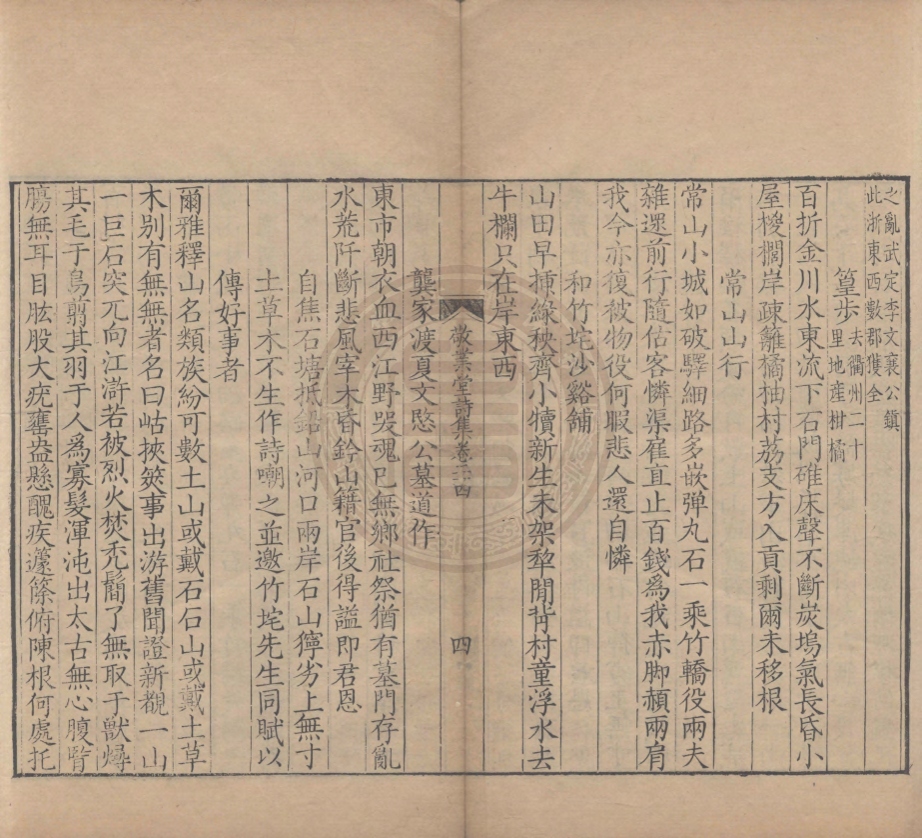 之亂武定李文襄公鎮
此浙東西數郡獲全
篁步去衢州二十
里地産柑橘
百折金川水東流下石門碓床聲不斷炭塢氣長昏小
屋椶欄岸疎籬橘柚村荔支方入貢剩爾未移根
常山山行
常山小城如破驛細路多嵌弹丸石一乘竹轎役兩夫
雜還前行隨估客憐渠雇直止百錢爲我赤脚頳兩肩
我今亦復被物役何暇悲人還自憐
和竹垞沙谿舖
山田早揷綠秧齊小犢新生未架犂閒背村童浮水去
牛欄只在岸東西
敬業堂詩集卷二十四
四
龔家渡夏文愍公墓道作
東市朝衣血西江野哭魂巳無鄉社祭猶有墓門存亂
水荒阡斷悲風宰木昏鈐山籍官後得謚即君恩
自焦石塘抵鉛山河口兩岸石山獰劣上無寸
土草木不生作詩嘲之並邀竹垞先生同賦以
傳好事者
爾雅釋山名類族紛可數土山或戴石石山或戴土草
木别有無無者名曰岵挾筴事出游舊聞證新覩一山
一巨石突兀向江滸若被烈火焚禿鬜了無取于獸燖
其毛于鳥翦其羽于人爲寡髮渾沌出太古無心腹腎
膀無耳目肱股大疣罋盎懸醜疾蘧篨俯陳根何處托